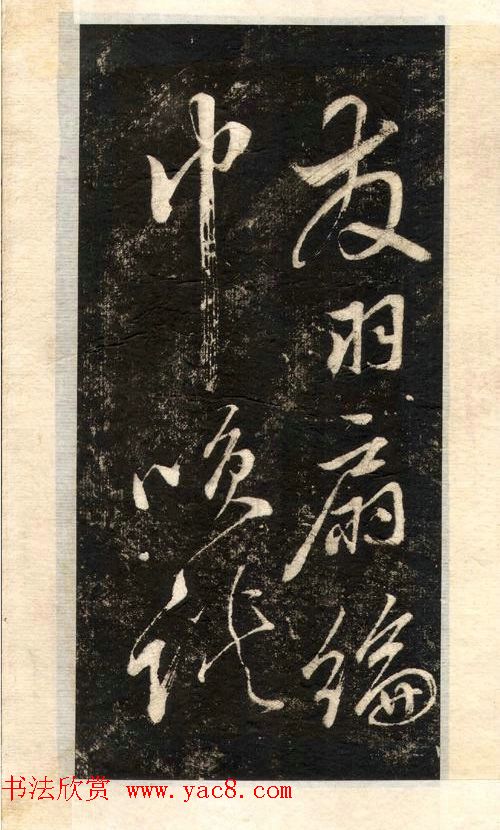 發羽扇綸
巾笑談
书法欣赏 www.yac8.com